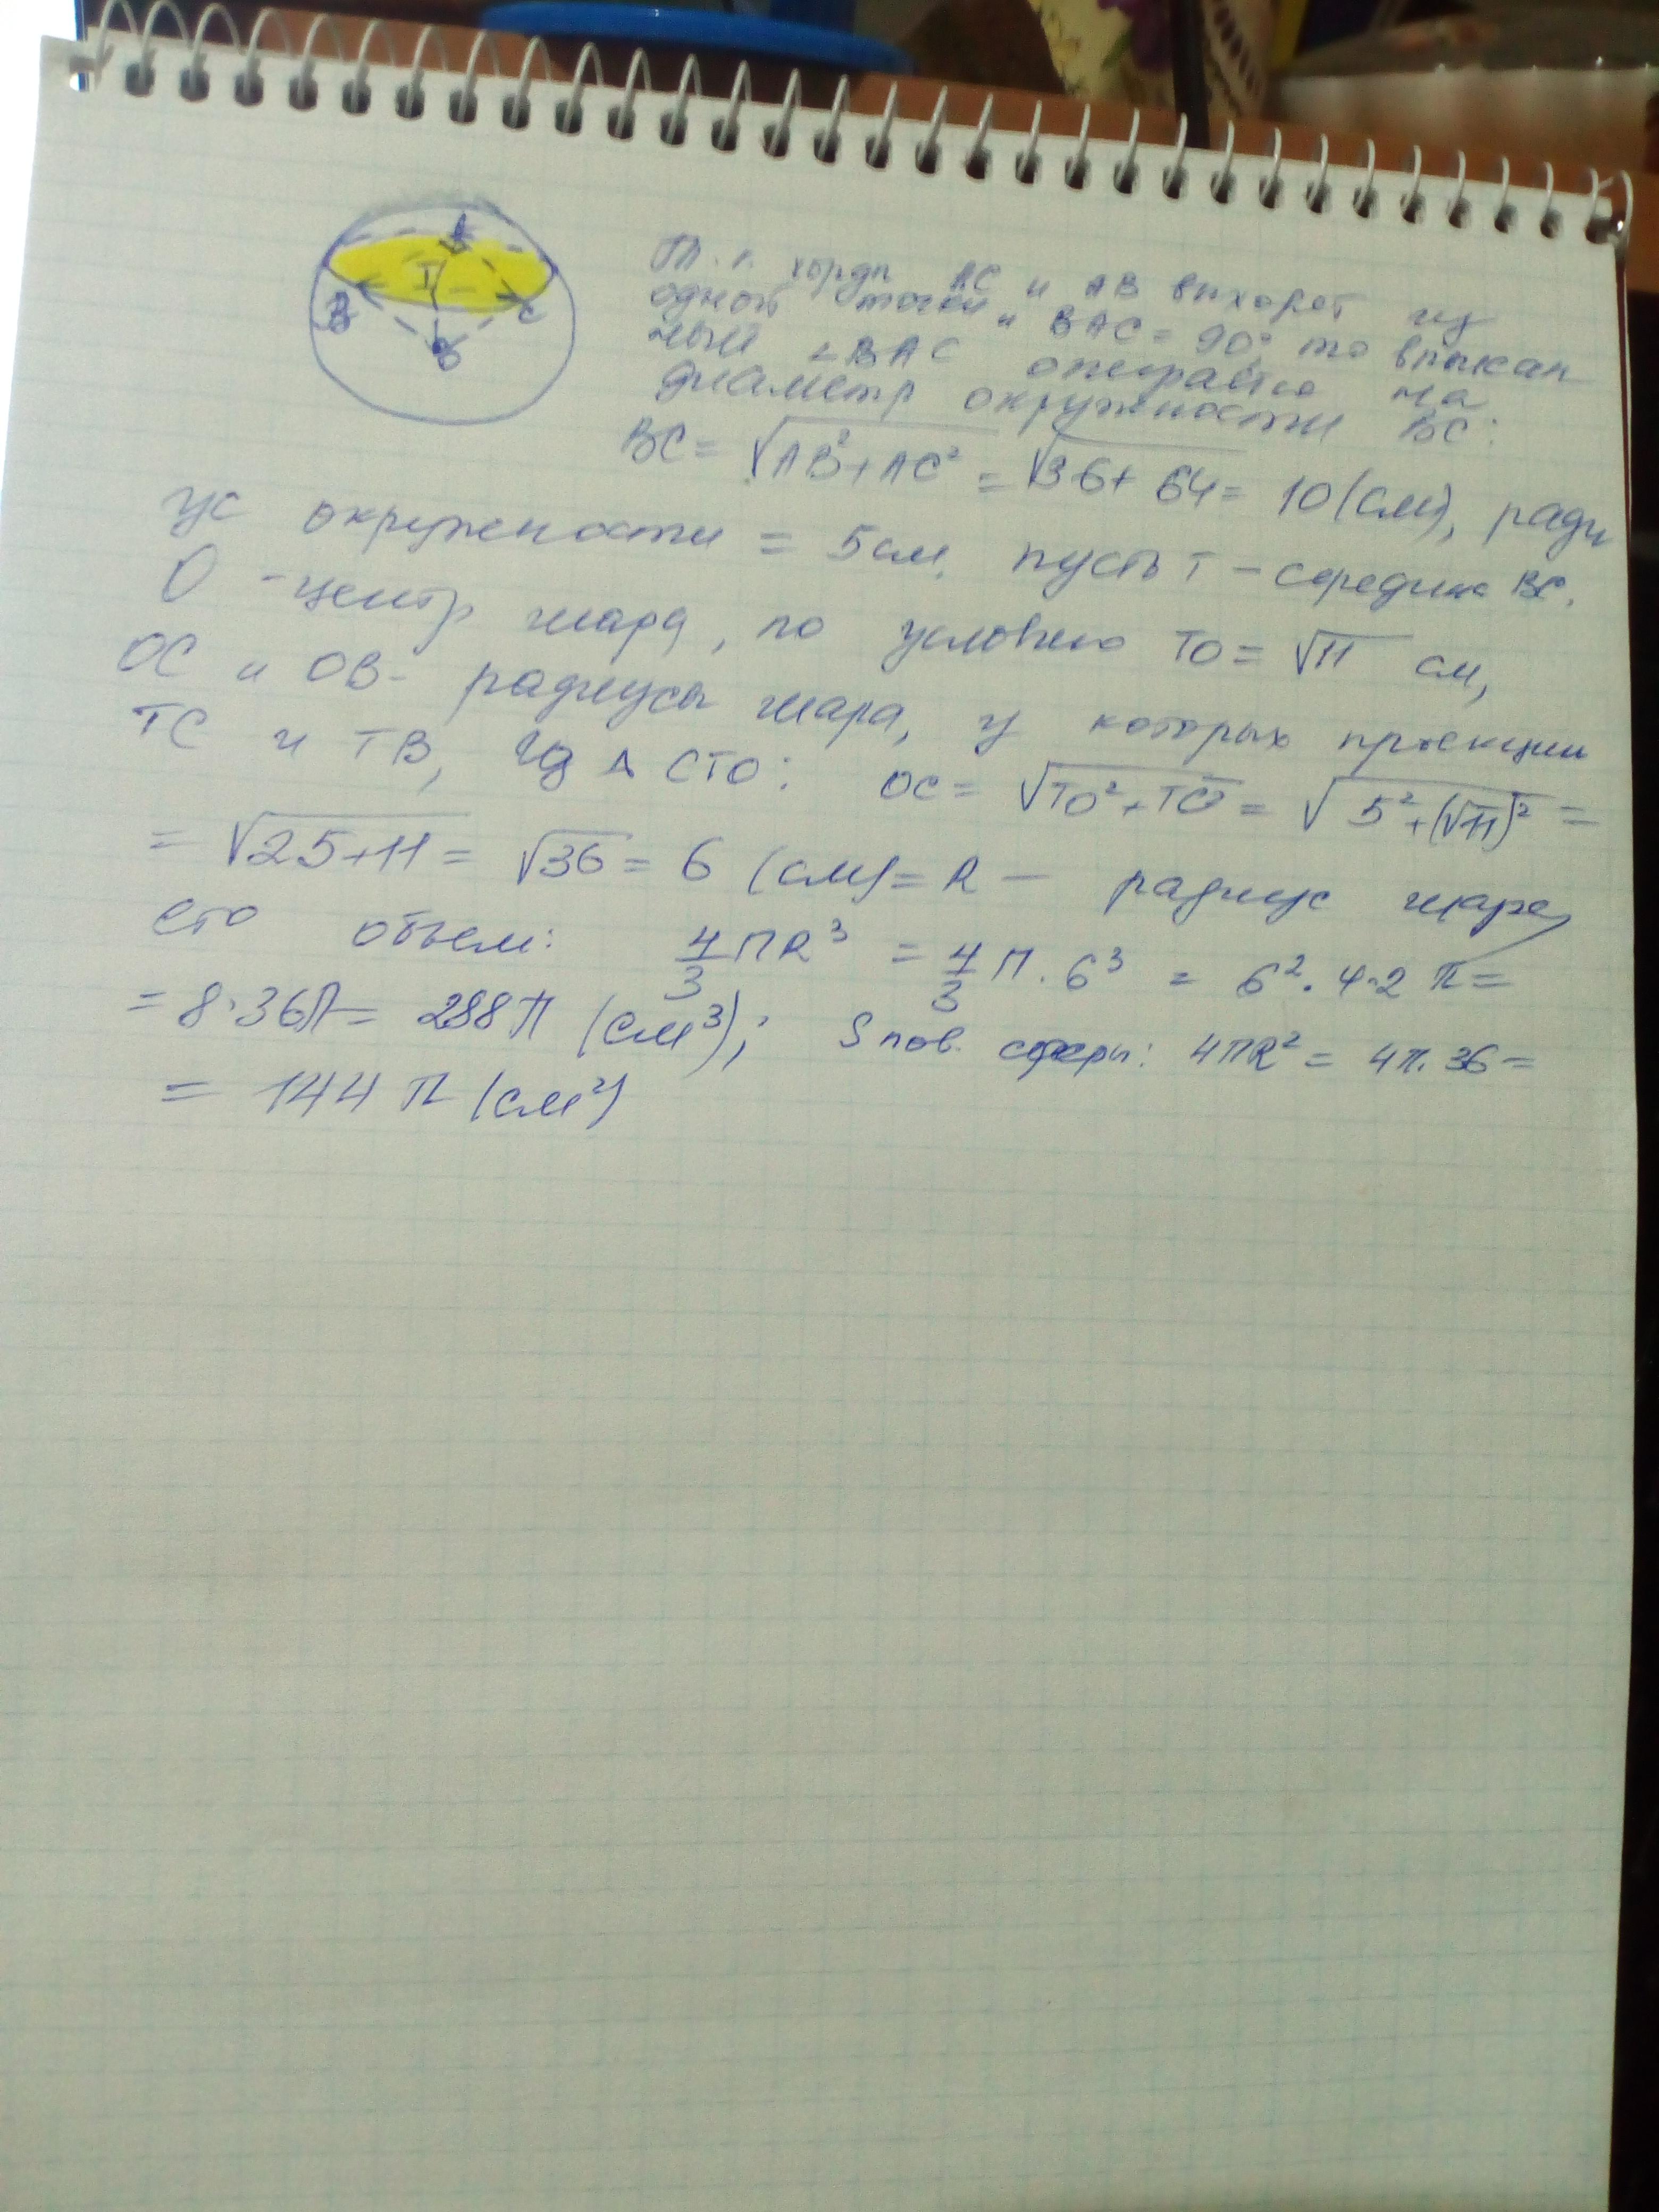 A
T
B
C
O
Т. к. хорды AC и AB выходят из
одной точки и BAC = 90° то вписан
ный ∠BAC опирается на
диаметр окружности BC:
BC = √AB²+AC² = √36+64 = 10 (см), ради
ус окружности = 5см. пусть T - середина BC.
O - центр шара, по условию TO = √11 см,
OC и OB - радиусы шара, у которых проекции
TC и TB, Из Δ CTO: OC = √TO²+TC² = √5²+(√11)² =
= √25+11 = √36 = 6 (см) = R - радиус шара,
его объем: 4/3 ПR³ = 4/3 П · 6³ = 6² · 4·2 П =
= 8·36П = 288П (см³); S пов. сферы: 4ПR² = 4П·36 =
= 144 П (см²)